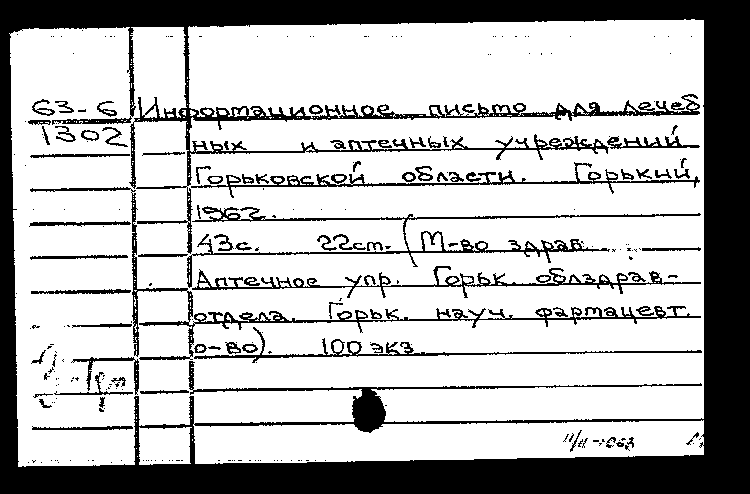 63-6 Информационное письмо для лечеб
1302 ных и аптечных учреждений
Горьковской области. Горький,
1962.
43с. 22ст. (М-во здрав.
Аптечное упр. Горьк. облздрав-
отдела. Горьк. науч. фармацевт.
о-во). 100 экз.